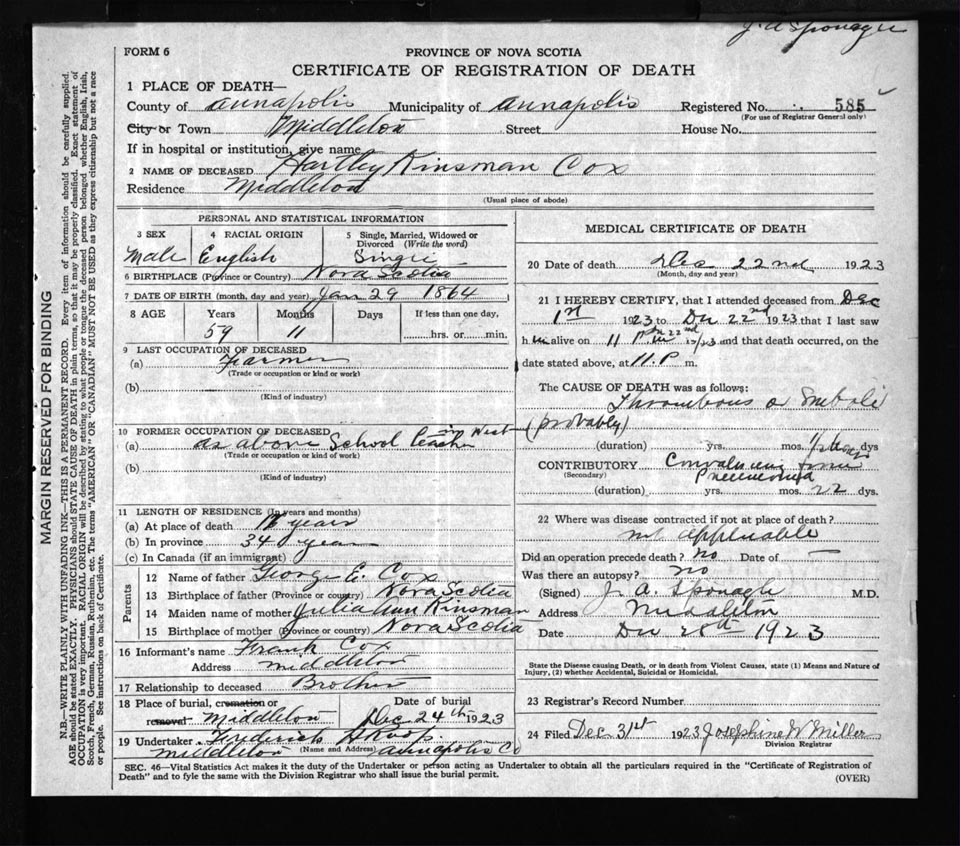 J. A Sponagle
FORM 6
PROVINCE OF NOVA SCOTIA
CERTIFICATE OF REGISTRATION OF DEATH
1 PLACE OF DEATH—
County of Annapolis Municipality of Annapolis Registered No. 585
(For use of Registrar General only)
City or Town Middleton Street House No.
If in hospital or institution, give name
2 NAME OF DECEASED Hartley Kinsman Cox
Residence Middleton
(Usual place of abode)
PERSONAL AND STATISTICAL INFORMATION
3 SEX 4 RACIAL ORIGIN 5 Single, Married, Widowed or Divorced (Write the word)
Male English Single
6 BIRTHPLACE (Province or Country) Nova Scotia
7 DATE OF BIRTH (month, day and year) Jan 29 1864
8 AGE Years Months Days If less than one day,
59 11 hrs. or min.
9 LAST OCCUPATION OF DECEASED
(a) Farmer
(Trade or occupation or kind or work)
(b)
(Kind of industry)
10 FORMER OCCUPATION OF DECEASED
(a) as above School Teacher in West
(Trade or occupation or kind of work)
(b)
(Kind of industry)
11 LENGTH OF RESIDENCE (In years and months)
(a) At place of death years
(b) In province 34 years
(c) In Canada (if an immigrant)
Parents
12 Name of father George E. Cox
13 Birthplace of father (Province or country) Nova Scotia
14 Maiden name of mother Julia Ann Kinsman
15 Birthplace of mother (Province or country) Nova Scotia
16 Informant's name Frank Cox
Address Middleton
17 Relationship to deceased Brother
18 Place of burial, cremation or removal Middleton Date of burial Dec. 24th 1923
19 Undertaker Frederick Roop
(Name and Address)
Middleton Annapolis Co
MEDICAL CERTIFICATE OF DEATH
20 Date of death Dec 22nd 1923
(Month, day and year)
21 I HEREBY CERTIFY, that I attended deceased from Dec
1st 1923 to Dec 22nd 1923 that I last saw
h im alive on 11 Pm 22nd 12/23 and that death occurred, on the
date stated above, at 11.P m.
The CAUSE OF DEATH was as follows:
Thrombous or Emboli
(probably)
(duration) yrs. mos. dys
CONTRIBUTORY Convalescing from
(Secondary) Pneumonia
(duration) yrs. mos. 22 dys.
22 Where was disease contracted if not at place of death?
not applicable
Did an operation precede death? no Date of —
Was there an autopsy? no
(Signed) J. A. Sponagle M.D.
Address Middleton
Date Dec 28th 1923
State the Disease causing Death, or in death from Violent Causes, state (1) Means and Nature of
Injury, (2) whether Accidental, Suicidal or Homicidal.
23 Registrar's Record Number
24 Filed Dec 31st 1923 Josephine W Miller
Division Registrar
SEC. 46—Vital Statistics Act makes it the duty of the Undertaker or person acting as Undertaker to obtain all the particulars required in the "Certificate of Registration of
Death" and to fyle the same with the Division Registrar who shall issue the burial permit.
(OVER)
MARGIN RESERVED FOR BINDING
N.B.—WRITE PLAINLY WITH UNFADING INK—THIS IS A PERMANENT RECORD. Every item of information should be carefully supplied.
AGE should be stated EXACTLY. PHYSICIANS should STATE CAUSE OF DEATH in plain terms, so that it may be properly classified. Exact statement of
OCCUPATION is very important. RACIAL ORIGIN will be described by stating to what people or tongue the deceased person belonged whether English, Irish,
Scotch, French, German, Russian, Ruthenian, etc. The terms "AMERICAN" or "CANADIAN" MUST NOT BE USED as they express citizenship but not a race
or people. See instructions on back of Certificate.